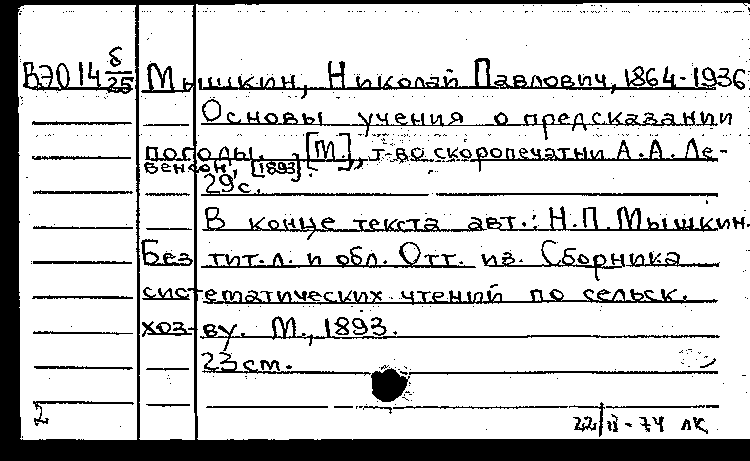 ВЭ0 14 б/25 Мышкин, Николай Павлович, 1864-1936
Основы учения о предсказании
погоды. [М.], т-во скоропечатни А.А. Ле-
венсон, [1893].
29 с.
В конце текста авт.: Н.П. Мышкин.
Без тит.л. и обл. Отт. из. Сборника
систематических чтений по сельск.
хоз-ву. М., 1893.
23 см.
2
22/II-74 ЛК